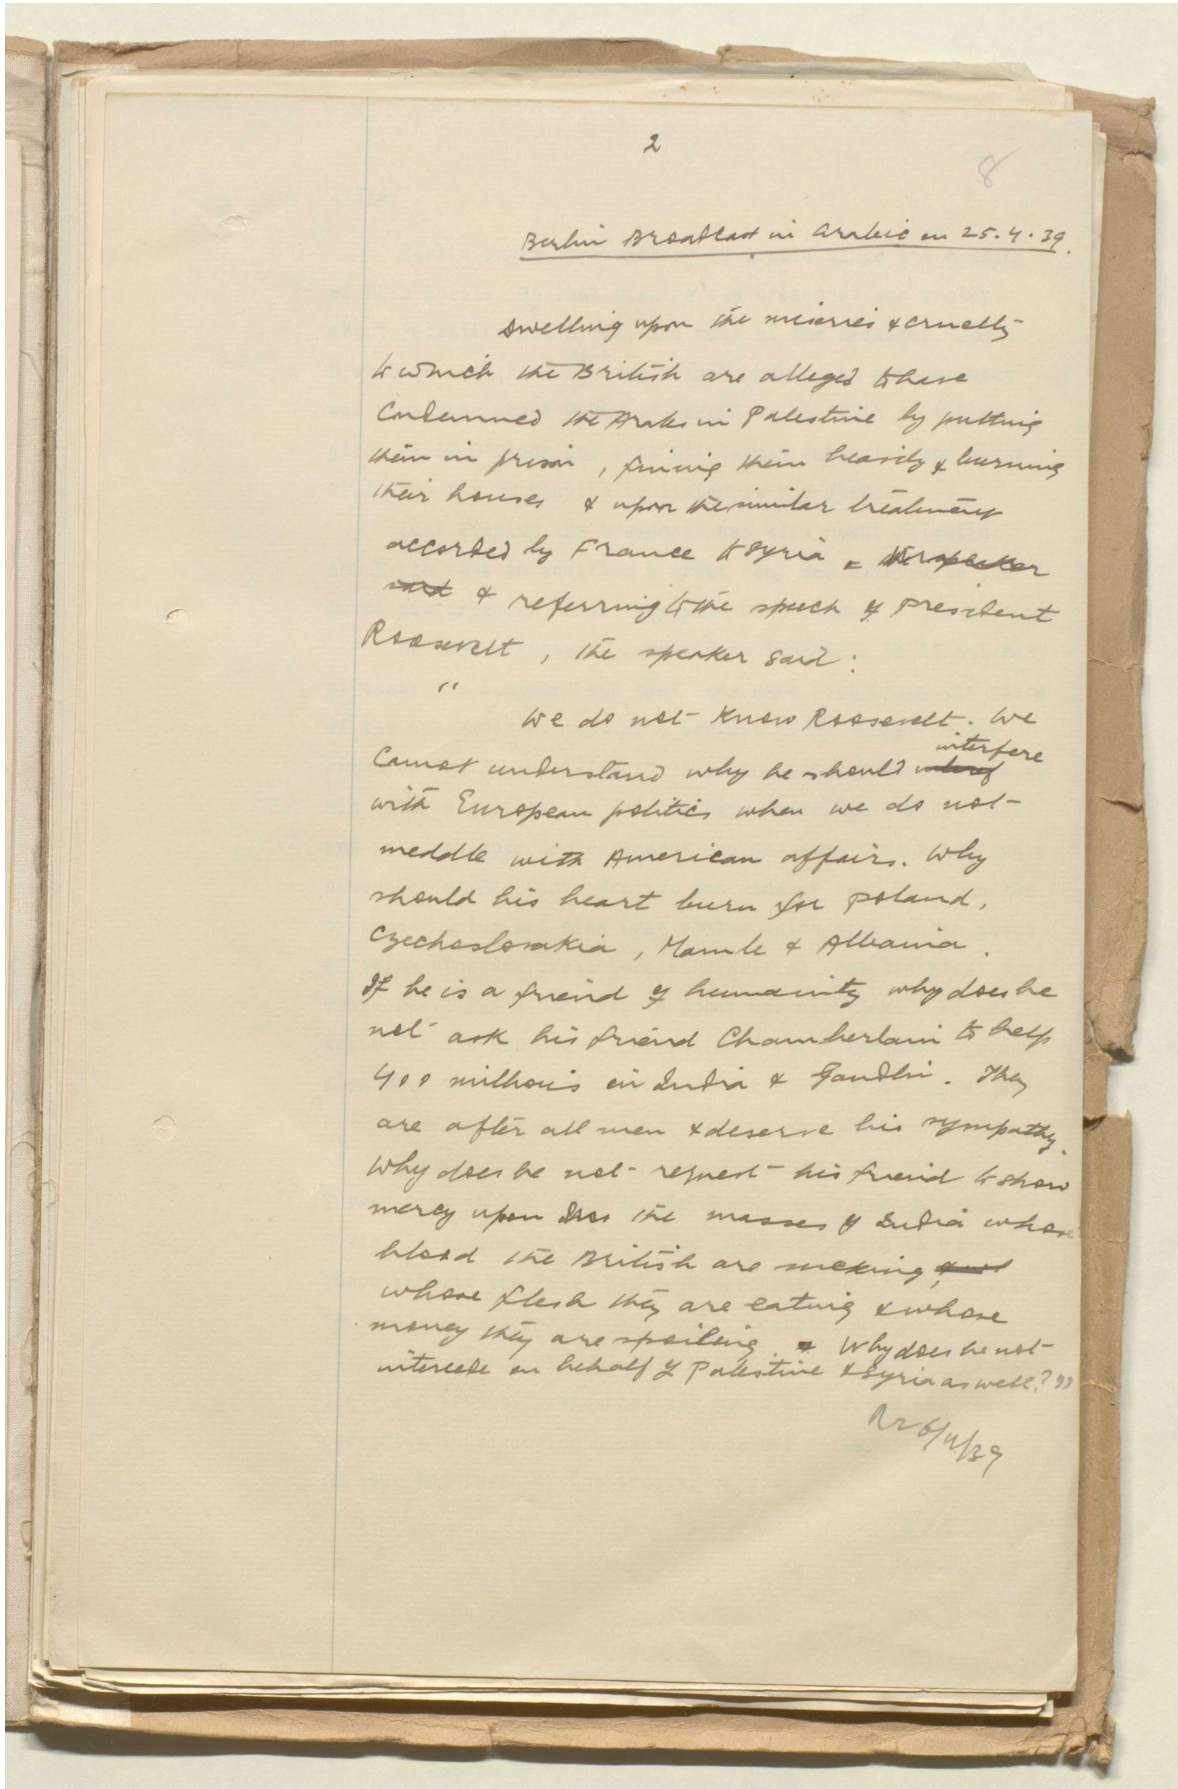 2
8
Berlin Broadcast in Arabic on 25.4.39.
Dwelling upon the miseries & cruelty
to which the British are alleged to have
Condemned the Arabs in Palestine by putting
them in prison, fining them heavily & burning
their houses & upon the similar treatment
accorded by France to Syria, the speaker
said & referring to the speech of President
Roosevelt, the speaker said:
"
We do not know Roosevelt. We
interfere
Cannot understand why he should
with European politics when we do not
meddle with American affairs. Why
should his heart burn for Poland,
Czechoslovakia, & Albania.
If he is a friend of humanity why does he
not ask his friend Chamberlain to help
400 millions in India & Gandhi. They
are after all men & deserve his sympathy.
Why does he not request his friend to show
mercy upon the masses of India whose
blood the British are sucking,
whose flesh they are eating & whose
money they are spoiling. & Why does he not
intercede on behalf of Palestine & Syria as well?"
6/4/39